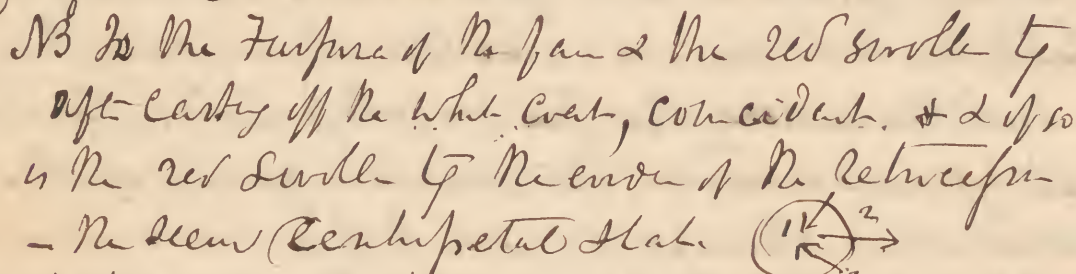 NB Is the Furfura of the face & the red swollen Tg
after casting off the white coat, coincident. & if so
is the red swollen Tg the end of the
– the Centripetal State 2